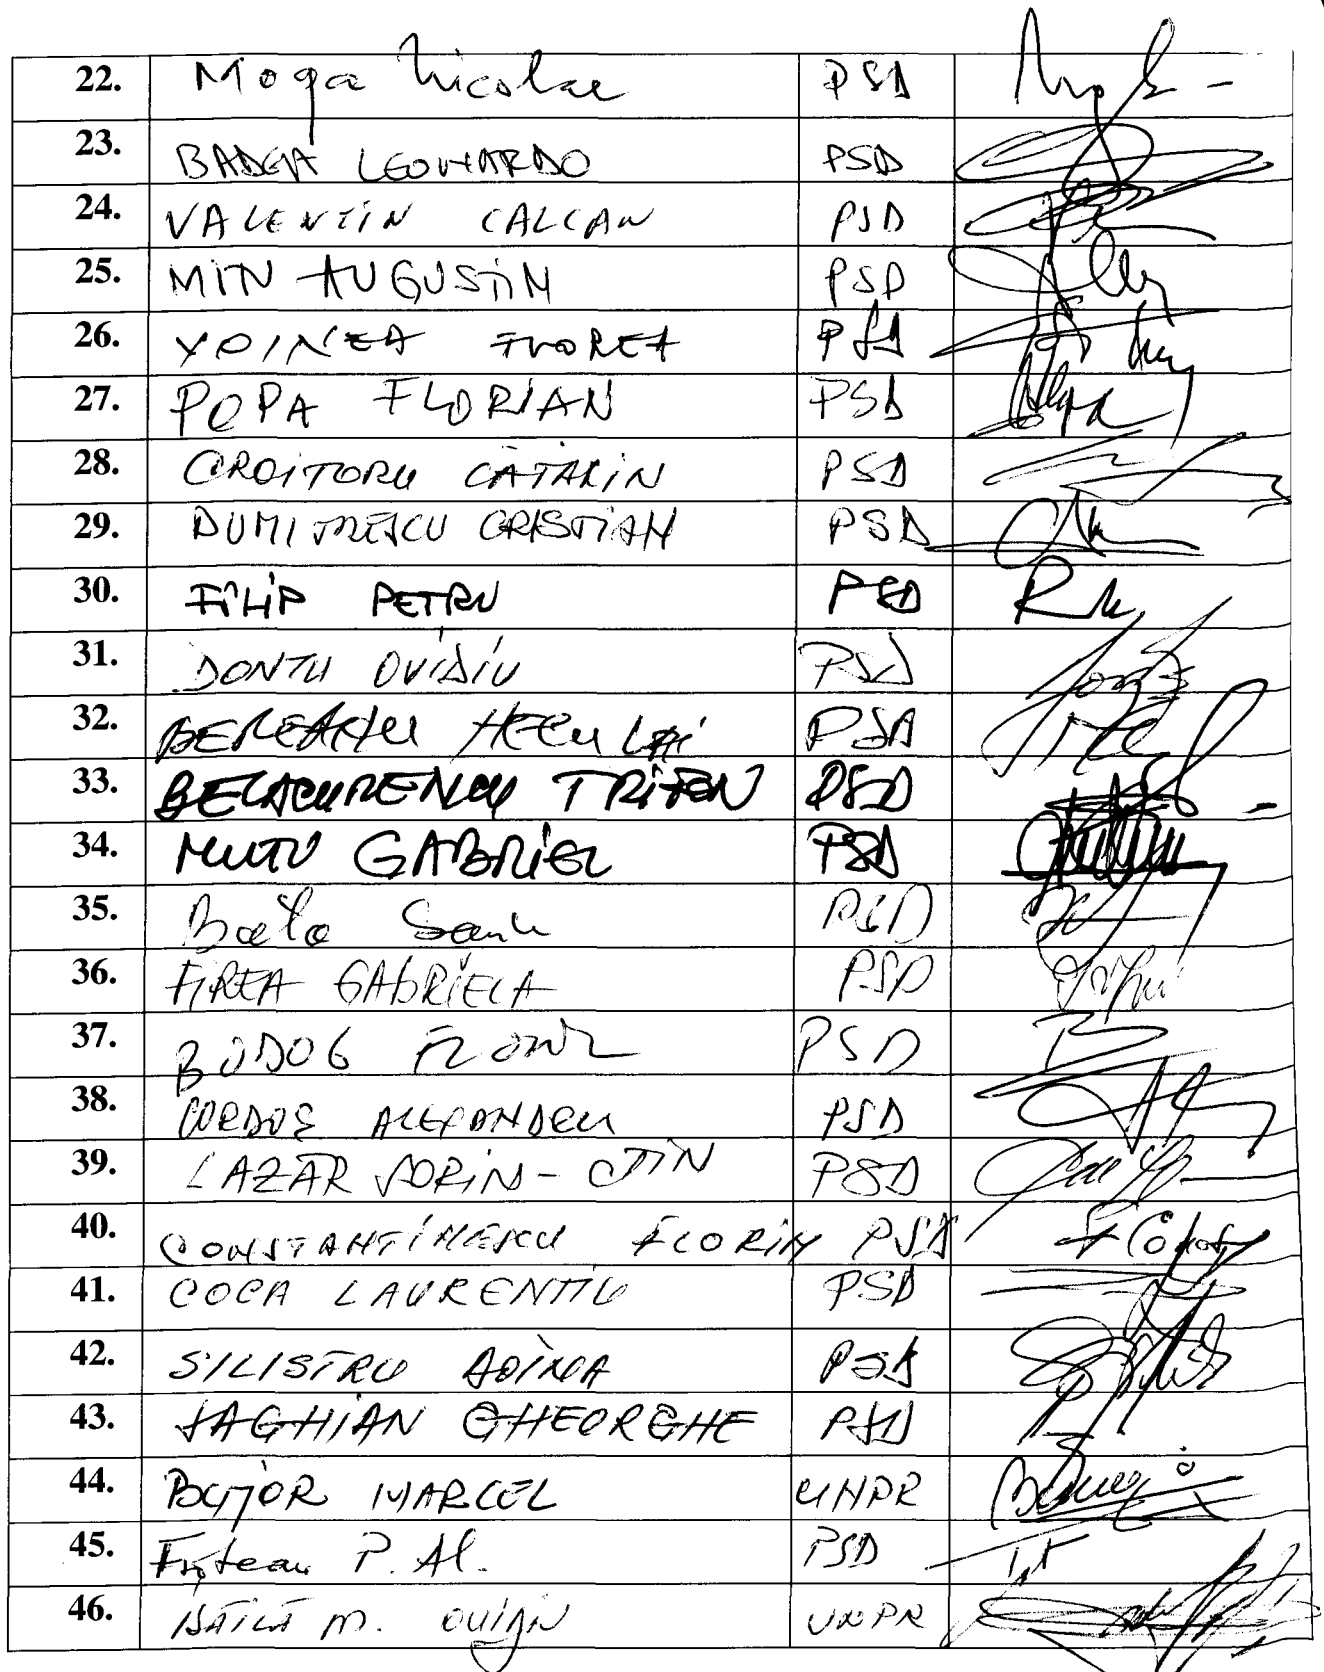 22. Moga Nicolae PSD
23. BADEA LEONARDO PSD
24. VALENTIN CALCAN PSD
25. MITU AUGUSTIN PSD
26. VOINEA FLOREA PSD
27. POPA FLORIAN PSD
28. CROITORU CĂTĂLIN PSD
29. DUMITRESCU CRISTIAN PSD
30. FILIP PETRU PSD
31. DONTU OVIDIU PSD
32. PSD
33. BELACURENCU TRIFON PSD
34. MUTU GABRIEL PSD
35. PSD
36. FIREA GABRIELA PSD
37. BODOG FLORIAN PSD
38. CORDOȘ ALEXANDRU PSD
39. LAZĂR SORIN-CTIN PSD
40. CONSTANTINESCU FLORIN PSD
41. COCA LAURENTIU PSD
42. SILISTRU DOINA PSD
43. SAGHIAN GHEORGHE PSD
44. BUJOR MARCEL UNPR
45. P. Al. PSD
46. M. UNPR